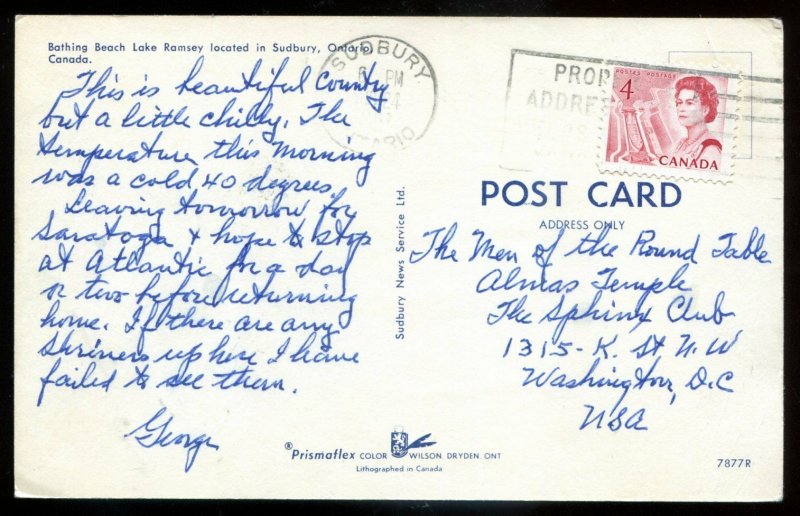 Bathing Beach Lake Ramsey located in Sudbury, Ontario,
Canada.
This is beautiful country
but a little chilly. The
temperature this morning
was a cold 40 degrees.
Leaving tomorrow for
Saratoga & hope to stop
at Atlantic for a day
or two before returning
home. If there are any
Shriners up here I have
failed to see them.
George
Sudbury News Service Ltd.
SUDBURY
PM
ONTARIO
PROP
ADDRE
POSTES POSTAGE
4
CANADA
POST CARD
ADDRESS ONLY
The Men of the Round Table
Almas Temple
The Sphinx Club
1315-K. St N.W
Washington, D.C
USA
®Prismaflex COLOR WILSON DRYDEN ONT
Lithographed in Canada
7877R